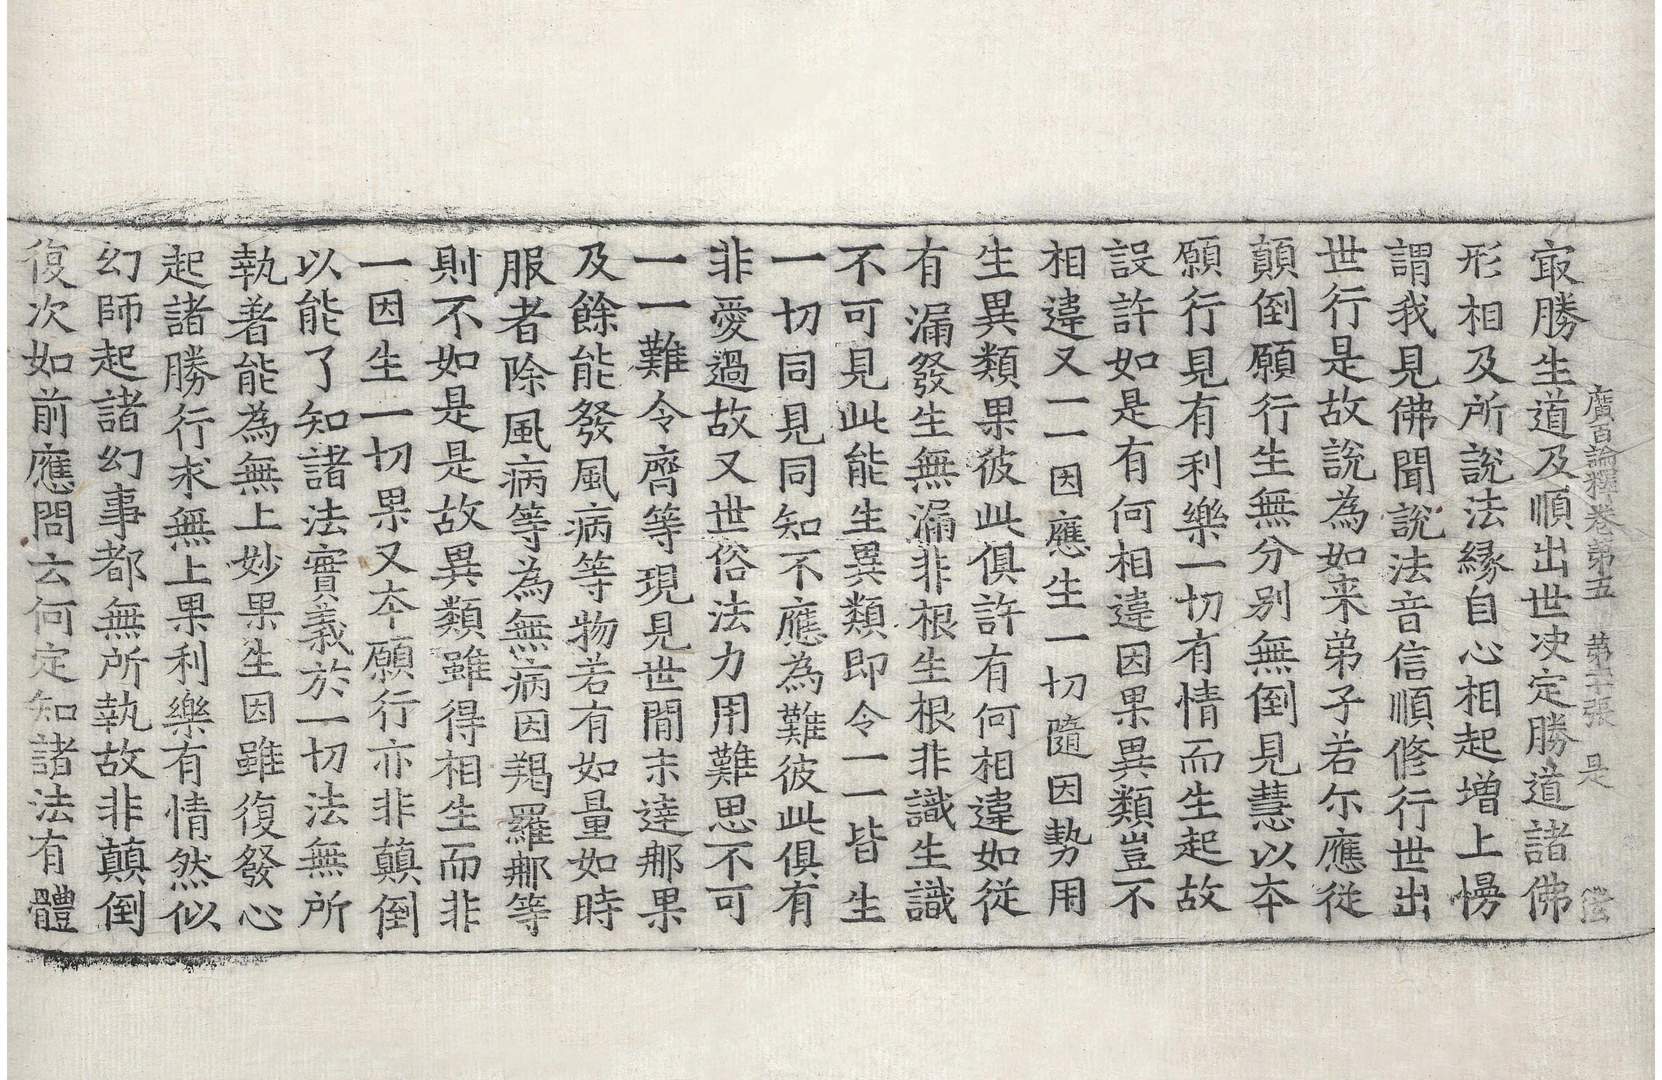 廣百論釋卷第五　第二十張　是
㝡勝生道及順出世决定勝道諸佛
形相及所說法縁自心相起增上慢
謂我見佛聞說法音信順修行世出
世行是故說為如来弟子若尓應從
顛倒願行生無分别無倒見慧以夲
願行見有利樂一切有情而生起故
設許如是有何相違因果異類豈不
相違又一一因應生一切隨因勢用
生異類果彼此俱許有何相違如從
有漏發生無漏非根生根非識生識
不可見此能生異類即令一一皆生
一切同見同知不應為難彼此俱有
非愛過故又世俗法力用難思不可
一一難令齊等現見世間末達那果
及餘能發風病等物若有如量如時
服者除風病等為無病因羯羅那等
則不如是是故異類雖得相生而非
一因生一切果又夲願行亦非顛倒
以能了知諸法實義於一切法無所
執着能為無上妙果生因雖復發心
起諸勝行求無上果利樂有情然似
幻師起諸幻事都無所執故非顛倒
復次如前應問云何定知諸法有體